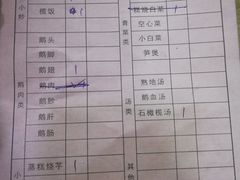 小炒
糯饭 1
鹅头
鹅脚
鹅翅 1
鹅肉
鹅胗
鹅肝
鹅肠
鹅肉类
蒸糕烧芋 1
小
青菜类
糕烧白菜 1
空心菜
小白菜
笋煲
汤类
熟地汤
鹅血汤
石橄榄汤 1
其他